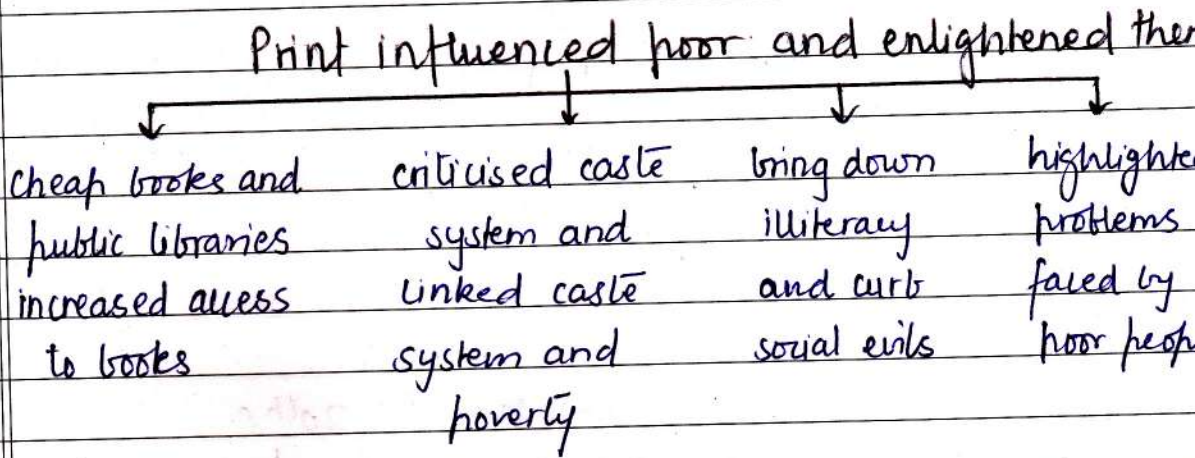 Print influenced poor and enlightened the
cheap books and
public libraries
increased access
to books
criticised caste
system and
linked caste
system and
poverty
bring down
illiteracy
and curb
social evils
highlighte
problems
faced by
poor peop